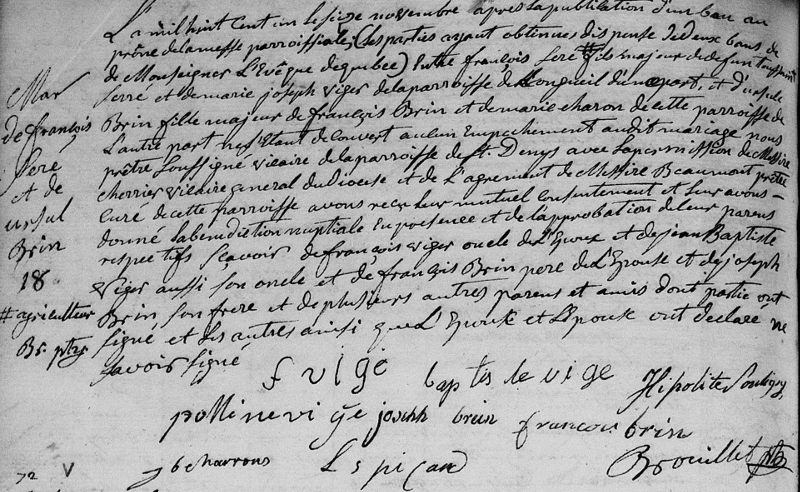 L'a mil huit Cent un le seize novembre apres la publication d'un ban au
prône de la messe parroissiale (les parties ayant obtenues dispense de deux bans de
de Monseigner L'Evêque de quebec) Entre françois Seré # fils majeur de defun toussaint
serré et de marie joseph Viger de la parroisse de Longueil d'une part, et d'ursule
Brin fille majeur de françois Brin et de marie charon de cette parroisse de
L'autre part ne s'Etant decouvert aucun Empechement au dit mariage nous
prêtre Soussigné vicaire de la parroisse de St. Denys avec la permission de Messire
cherrier vicaire general du Diocese et de L'agrement de Messire Beaumont prêtre
Curé de cette parroisse avons recu leur mutuel Consentement et leur avons
donné la benediction nuptiale En presence et de l'approbation de leur parens
respectifs Scavoir de françois viger oncle de L'Epoux et de jean Baptiste
viger aussi son oncle et de françois Brin pere de L'Epouse et de joseph
Brin son frere et de plusieurs autres parens et amis dont partie ont
signé et les autres ainsi que L'Epoux et L'Epouse ont declaré ne
savoir signé
Mar
de françois
Seré
et de
ursul
Brin
18
# agriculteur
Br. ptre
f vige
baptis le vige
Hipolite Souligny
polline vige
joseph brin
francois brin
J b charrons
L s picard
Brouillet
72 V